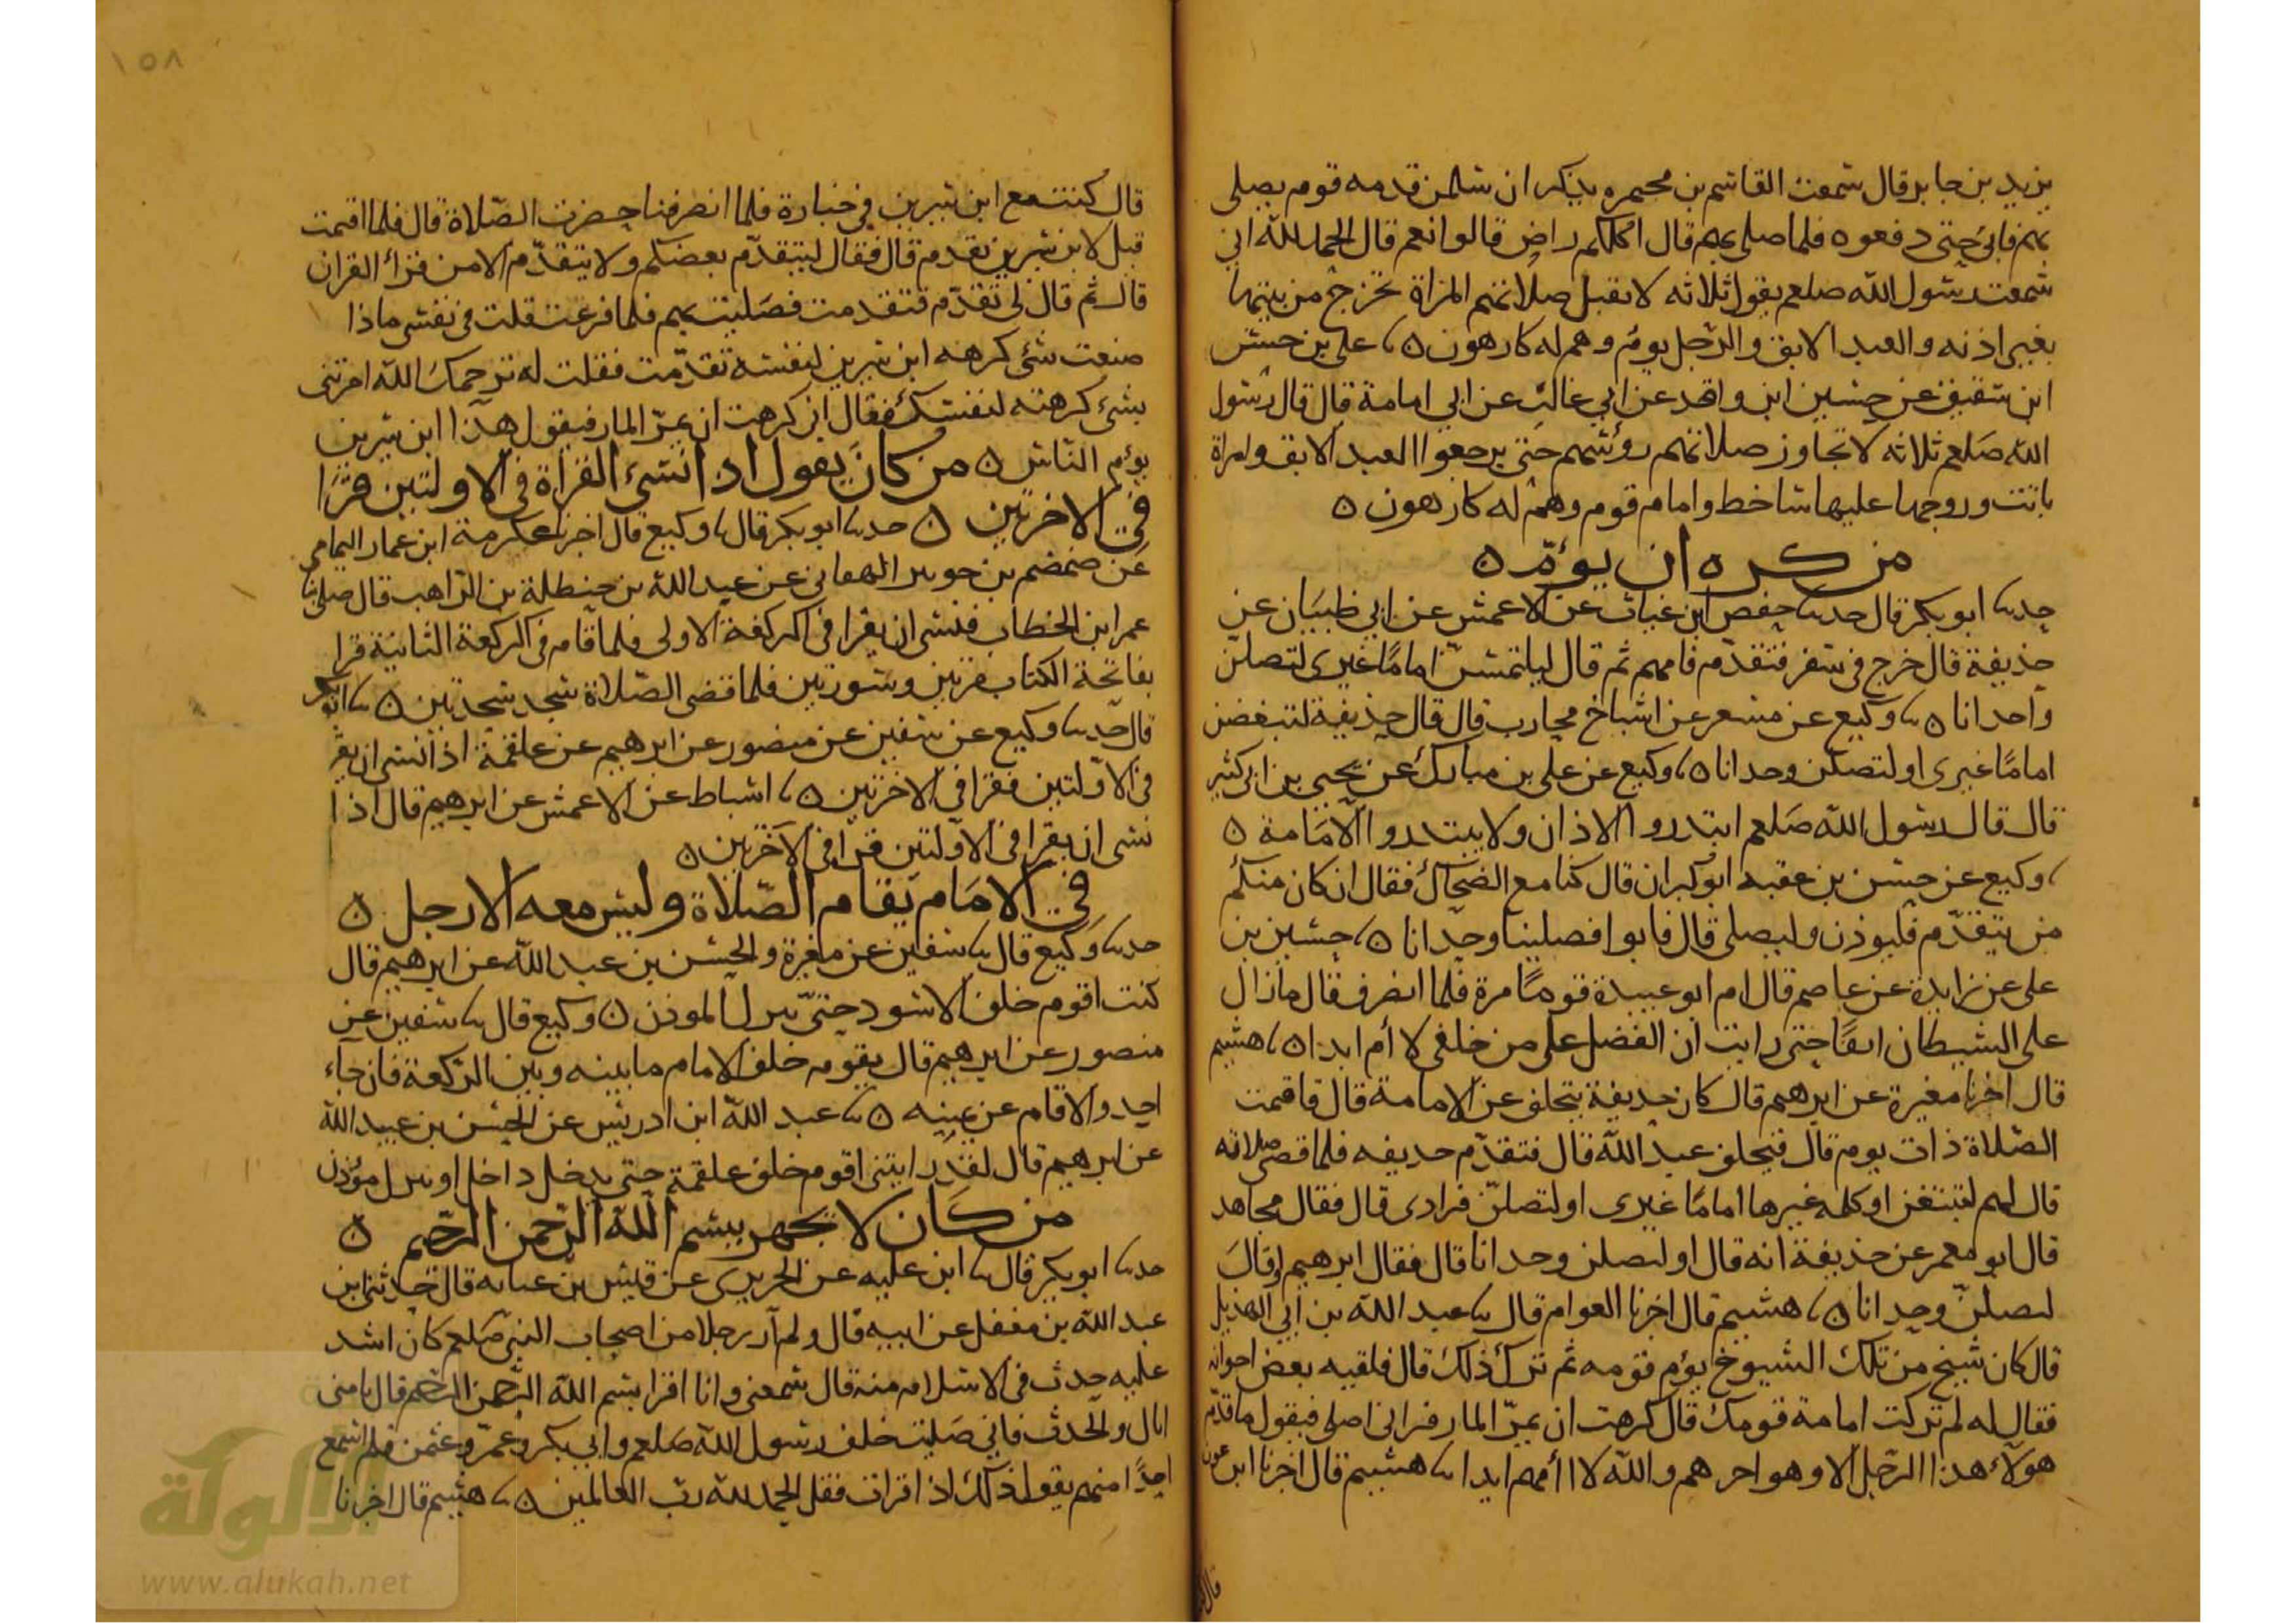 يزيد بن جابر قال سمعت القاسم بن مخيمرة يذكر ان سلمن قدمه قوم يصلي
بهم فابى حتى دفعوه فلما صلى بهم قال اكلكم راض قالوا نعم قال الحمد لله اني
سمعت رسول الله صلعم يقول ثلاثه لا تقبل صلاتهم المراة تخرج من بيتها
بغير اذنه والعبد الابق والرجل يؤم وهم له كارهون ٥ ثنا علي بن حسن
ابن شقيق عن حسين ابن واقد عن ابي غالب عن ابي امامة قال قال رسول
الله صلعم ثلاثه لا تجاوز صلاتهم رؤسهم حتى يرجعوا العبد الابق وامراة
باتت وزوجها عليها ساخط وامام قوم وهم له كارهون ٥
من كره ان يؤم ٥
حدثنا ابو بكر قال حدثنا حفص ابن غياث عن الاعمش عن ابي ظبيان عن
حذيفة قال خرج في سفر فتقدم فامهم ثم قال ليلتمسن اماما غيرى لتصلن
واحدانا ٥ ثنا وكيع عن مسعر عن اشياخ محارب قال قال حذيفة لتبغضن
اماما غيرى او لتصلن وحدانا ٥ ثنا وكيع عن علي بن مبارك عن يحيى بن ابي كثير
قال قال رسول الله صلعم ابتدروا الاذان ولا يبتدروا الامامة ٥
ثنا وكيع عن حسن بن عقبه ابو كبران قال كنا مع الضحاك فقال ان كان منكم
من يتقدم فليوذن وليصلى قال فابوا فصلينا وحدانا ٥ ثنا حسين بن
على عن زايدة عن عاصم قال ام ابو عبيدة قوما مرة فلما انصرف قال ما زال
على الشيطان انفا حتى رايت ان الفضل على من خلفى لا أم ابدا ٥ ثنا هشيم
قال اخرنا مغيرة عن ابرهيم قال كان حذيفة يتخلف عن الامامة قال فاقيمت
الصلاة ذات يوم قال فتخلف عبد الله قال فتقدم حديفه فلما قضى صلاته
قال لهم لتبتغن او كلمه غيرها اماما غيرى او لتصلن فرادى قال فقال مجاهد
قال ابو معمر عن حذيفة انه قال او لتصلن وحدانا قال فقال ابرهيم او قال
لتصلن وحدانا ٥ ثنا هشيم قال اخرنا العوام قال ثنا عبد الله بن ابي الهذيل
قال كان شيخ من تلك الشيوخ يؤم قومه ثم ترك ذلك قال فلقيه بعض اخوانه
فقال له لم تركت امامة قومك قال كرهت ان يمر المار فيراني اصلى فيقول ما قدم
هولاء هذا الرجل الا وهو اخرهم والله لا اأمهم ابدا ثنا هشيم قال اخرنا ابن عون
١٥٨
قال كنت مع ابن سيرين في جنازة فلما انصرفنا حضرت الصلاة قال فلما اقيمت
قيل لابن سيرين تقدم قال فقال ليتقدم بعضكم ولا يتقدم الا من قرأ القران
قال ثم قال لي تقدم فتقدمت فصليت بهم فلما فرغت قلت في نفسى ماذا
صنعت شئ كرهه ابن سيرين لنفسه تقدمت فقلت له يرحمك الله امرتنى
بشئ كرهته لنفسك فقال اني كرهت ان يمر المار فيقول هذا ابن سيرين
يؤم الناس ٥ من كان يقول اذا نسى القراة في الاولتين قرا
في الاخرتين ٥ حدثنا ابو بكر قال ثنا وكيع قال اخرنا عكرمة ابن عمار اليمامي
عن ضمضم بن جوس الهفاني عن عبد الله بن حنطلة بن الراهب قال صلى بنا
عمر ابن الخطاب فنسى ان يقرا في الركعة الاولى فلما قام في الركعة الثانية قرا
بفاتحة الكتاب مرتين وسورتين فلما قضى الصلاة سجد سجدتين ٥ ثنا ابو بكر
قال حدثنا وكيع عن سفين عن منصور عن ابرهيم عن علقمة اذا نسى ان يقر
في الاولتين فقرا في الاخرتين ٥ ثنا اسباط عن الاعمش عن ابرهيم قال اذا
نسى ان يقرا في الاولتين قرا في الاخرتين ٥
في الامام يقام الصلاة وليس معه الا رجل ٥
حدثنا وكيع قال ثنا سفين عن مغيرة والحسن بن عبد الله عن ابرهيم قال
كنت اقوم خلف الاسود حتى ينزل الموذن ٥ وكيع قال ثنا سفين عن
منصور عن ابرهيم قال يقوم خلف الامام ما بينه وبين الركعة فان جاء
احد والا قام عن يمينه ٥ ثنا عبد الله ابن ادريس عن الحسن بن عبيد الله
عن ابرهيم قال لقد رايتني اقوم خلف علقمة حتى يدخل داخل او ينزل مؤذن
من كان لا يجهر ببسم الله الرحمن الرحيم ٥
حدثنا ابو بكر قال ثنا ابن عليه عن الجريرى عن قيس بن عبايه قال حدثنى ابن
عبد الله بن مغفل عن ابيه قال ولم ار رجلا من اصحاب النبي صلعم كان اشد
عليه حدث في الاسلام منه قال سمعنى وانا اقرا بسم الله الرحمن الرحيم قال يا بنى
اياك والحدث فاني صليت خلف رسول الله صلعم وابي بكر وعمر وعثمن فلم اسمع
احدا منهم يقول ذلك اذا قرات فقل الحمد لله رب العالمين ٥ ثنا هشيم قال اخرنا
الألوكة
www.alukah.net